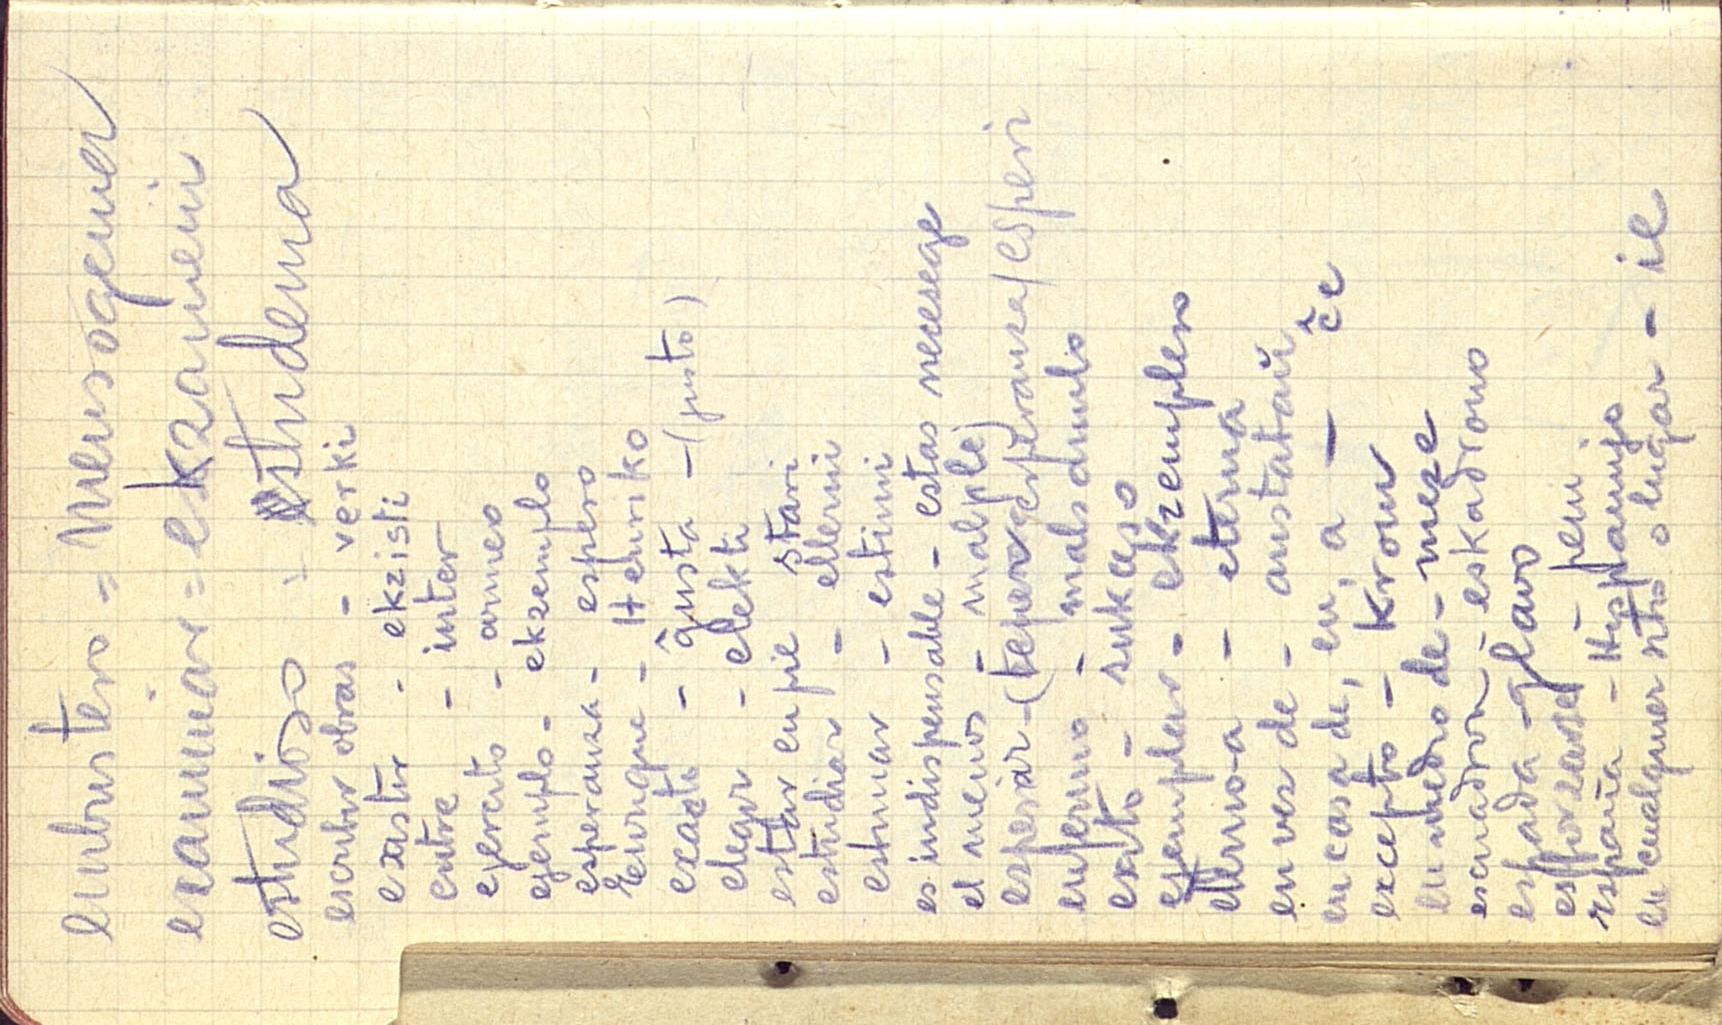 embustero = Mensogemer
examinar = ekzameni
estudioso - studema
escribir obras - verki
existir - ekzisti
entre - inter
ejercito - armeo
ejemplo - ekzemplo
esperanza - espero
Enrique - Henriko
exacta - ĝusta - (justo)
elegir - elekti
estar en pie stari
estudiar - ellerni
estimar - estimi
es indispensable - estas necesege
el menos - malplej
esperar - (tener esperanza) esperi
enfermo - malsanulo
exito - sukceso
ejemplar - ekzemplero
eterno-a - eterna
en vez de - anstataŭ
en casa de, en, a - ĉe
excepto - krom
en medio de - meze
escuadron - eskadrono
espada - glavo
esforzarse - peni
españa - Hispanujo
en cualquier sitio o lugar - ie